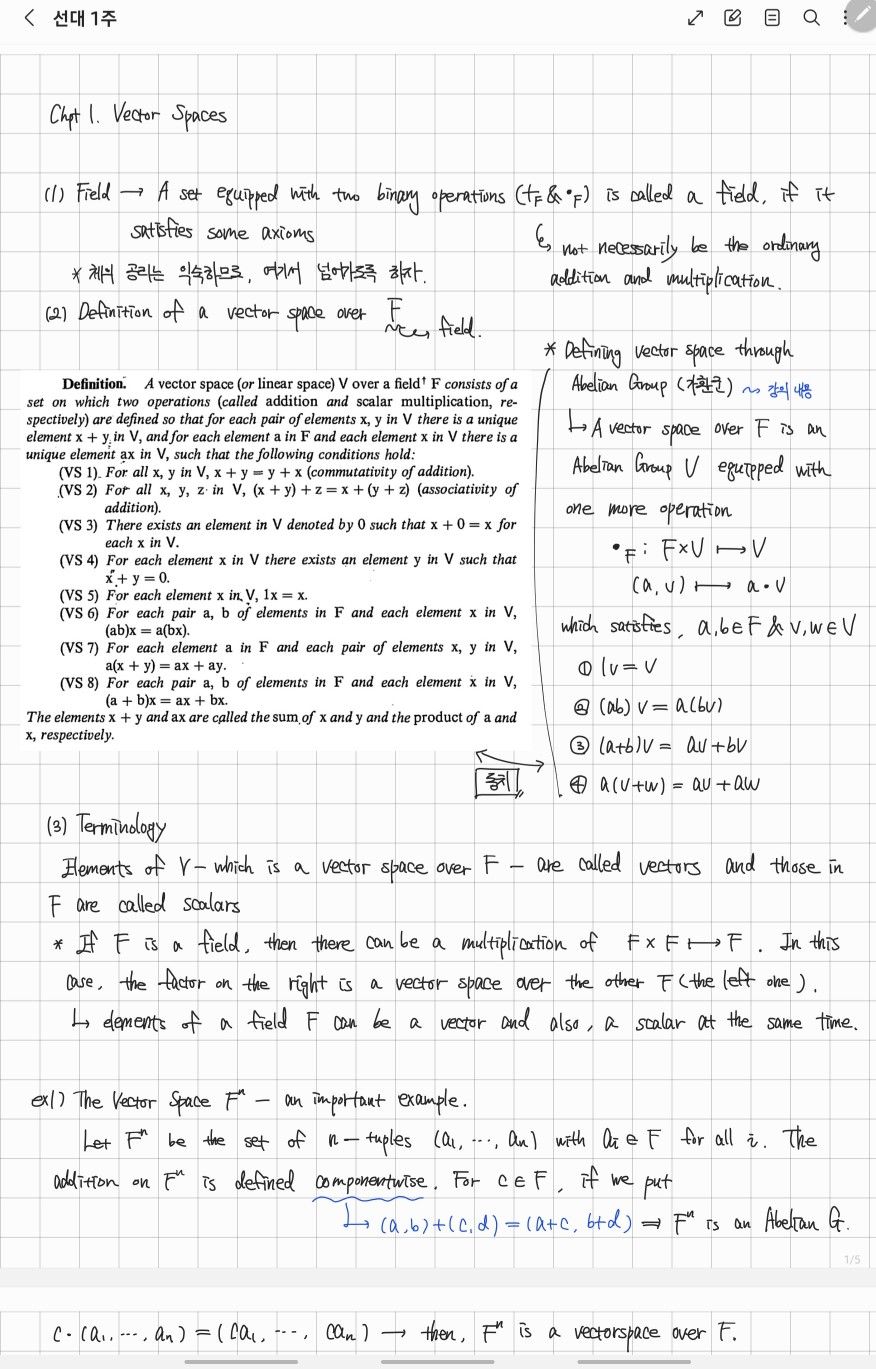 선대 1주
Chpt 1. Vector Spaces
(1) Field → A set equipped with two binary operations (+F & •F) is called a field, if it
satisfies some axioms
↳ not necessarily be the ordinary
addition and multiplication.
* 체의 공리는 익숙하므로, 여기서 넘어가도록 하자.
(2) Definition of a vector space over F
↳ field.
Definition. A vector space (or linear space) V over a field† F consists of a
set on which two operations (called addition and scalar multiplication, re-
spectively) are defined so that for each pair of elements x, y in V there is a unique
element x + y in V, and for each element a in F and each element x in V there is a
unique element ax in V, such that the following conditions hold:
(VS 1) For all x, y in V, x + y = y + x (commutativity of addition).
(VS 2) For all x, y, z in V, (x + y) + z = x + (y + z) (associativity of
addition).
(VS 3) There exists an element in V denoted by 0 such that x + 0 = x for
each x in V.
(VS 4) For each element x in V there exists an element y in V such that
x + y = 0.
(VS 5) For each element x in V, 1x = x.
(VS 6) For each pair a, b of elements in F and each element x in V,
(ab)x = a(bx).
(VS 7) For each element a in F and each pair of elements x, y in V,
a(x + y) = ax + ay.
(VS 8) For each pair a, b of elements in F and each element x in V,
(a + b)x = ax + bx.
The elements x + y and ax are called the sum of x and y and the product of a and
x, respectively.
* Defining vector space through
Abelian Group (가환군) ~> 강의 내용
↳ A vector space over F is an
Abelian Group V equipped with
one more operation
•F : F×V ↦ V
(a, v) ↦ a•v
which satisfies, a,b∈F & v,w∈V
① 1v = v
② (ab) v = a(bv)
③ (a+b)v = av+bv
④ a(v+w) = av+aw
동치
(3) Terminology
Elements of V – which is a vector space over F – are called vectors and those in
F are called scalars
* If F is a field, then there can be a multiplication of F × F ↦ F. In this
case, the factor on the right is a vector space over the other F (the left one).
↳ elements of a field F can be a vector and also, a scalar at the same time.
ex1) The Vector Space Fⁿ – an important example.
Let Fⁿ be the set of n-tuples (a₁, ..., aₙ) with aᵢ ∈ F for all i. The
addition on Fⁿ is defined componentwise. For c∈F, if we put
↳ (a,b)+(c,d) = (a+c, b+d) ⇒ Fⁿ is an Abelian G.
1/5
c•(a₁, ..., aₙ) = (ca₁, ..., caₙ) → then, Fⁿ is a vectorspace over F.